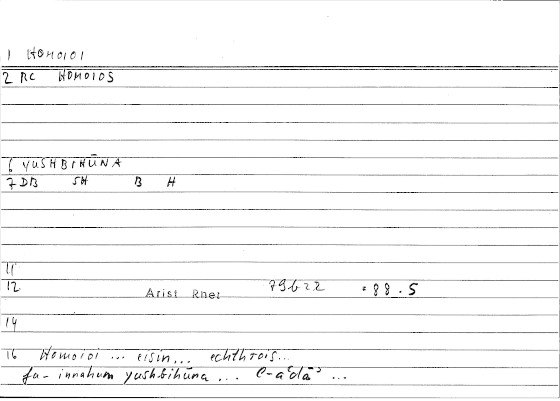 1 HOMOIOI
2 RC HOMOIOS
6 YUSHBIHŪNA
7 DB SH B H
11
12 Arist Rhet 79b22 88.5
14
16 Homoioi ... eisin ... echthrois ...
fa-innahum yushbihūna ... l-aʿdāʾ ...